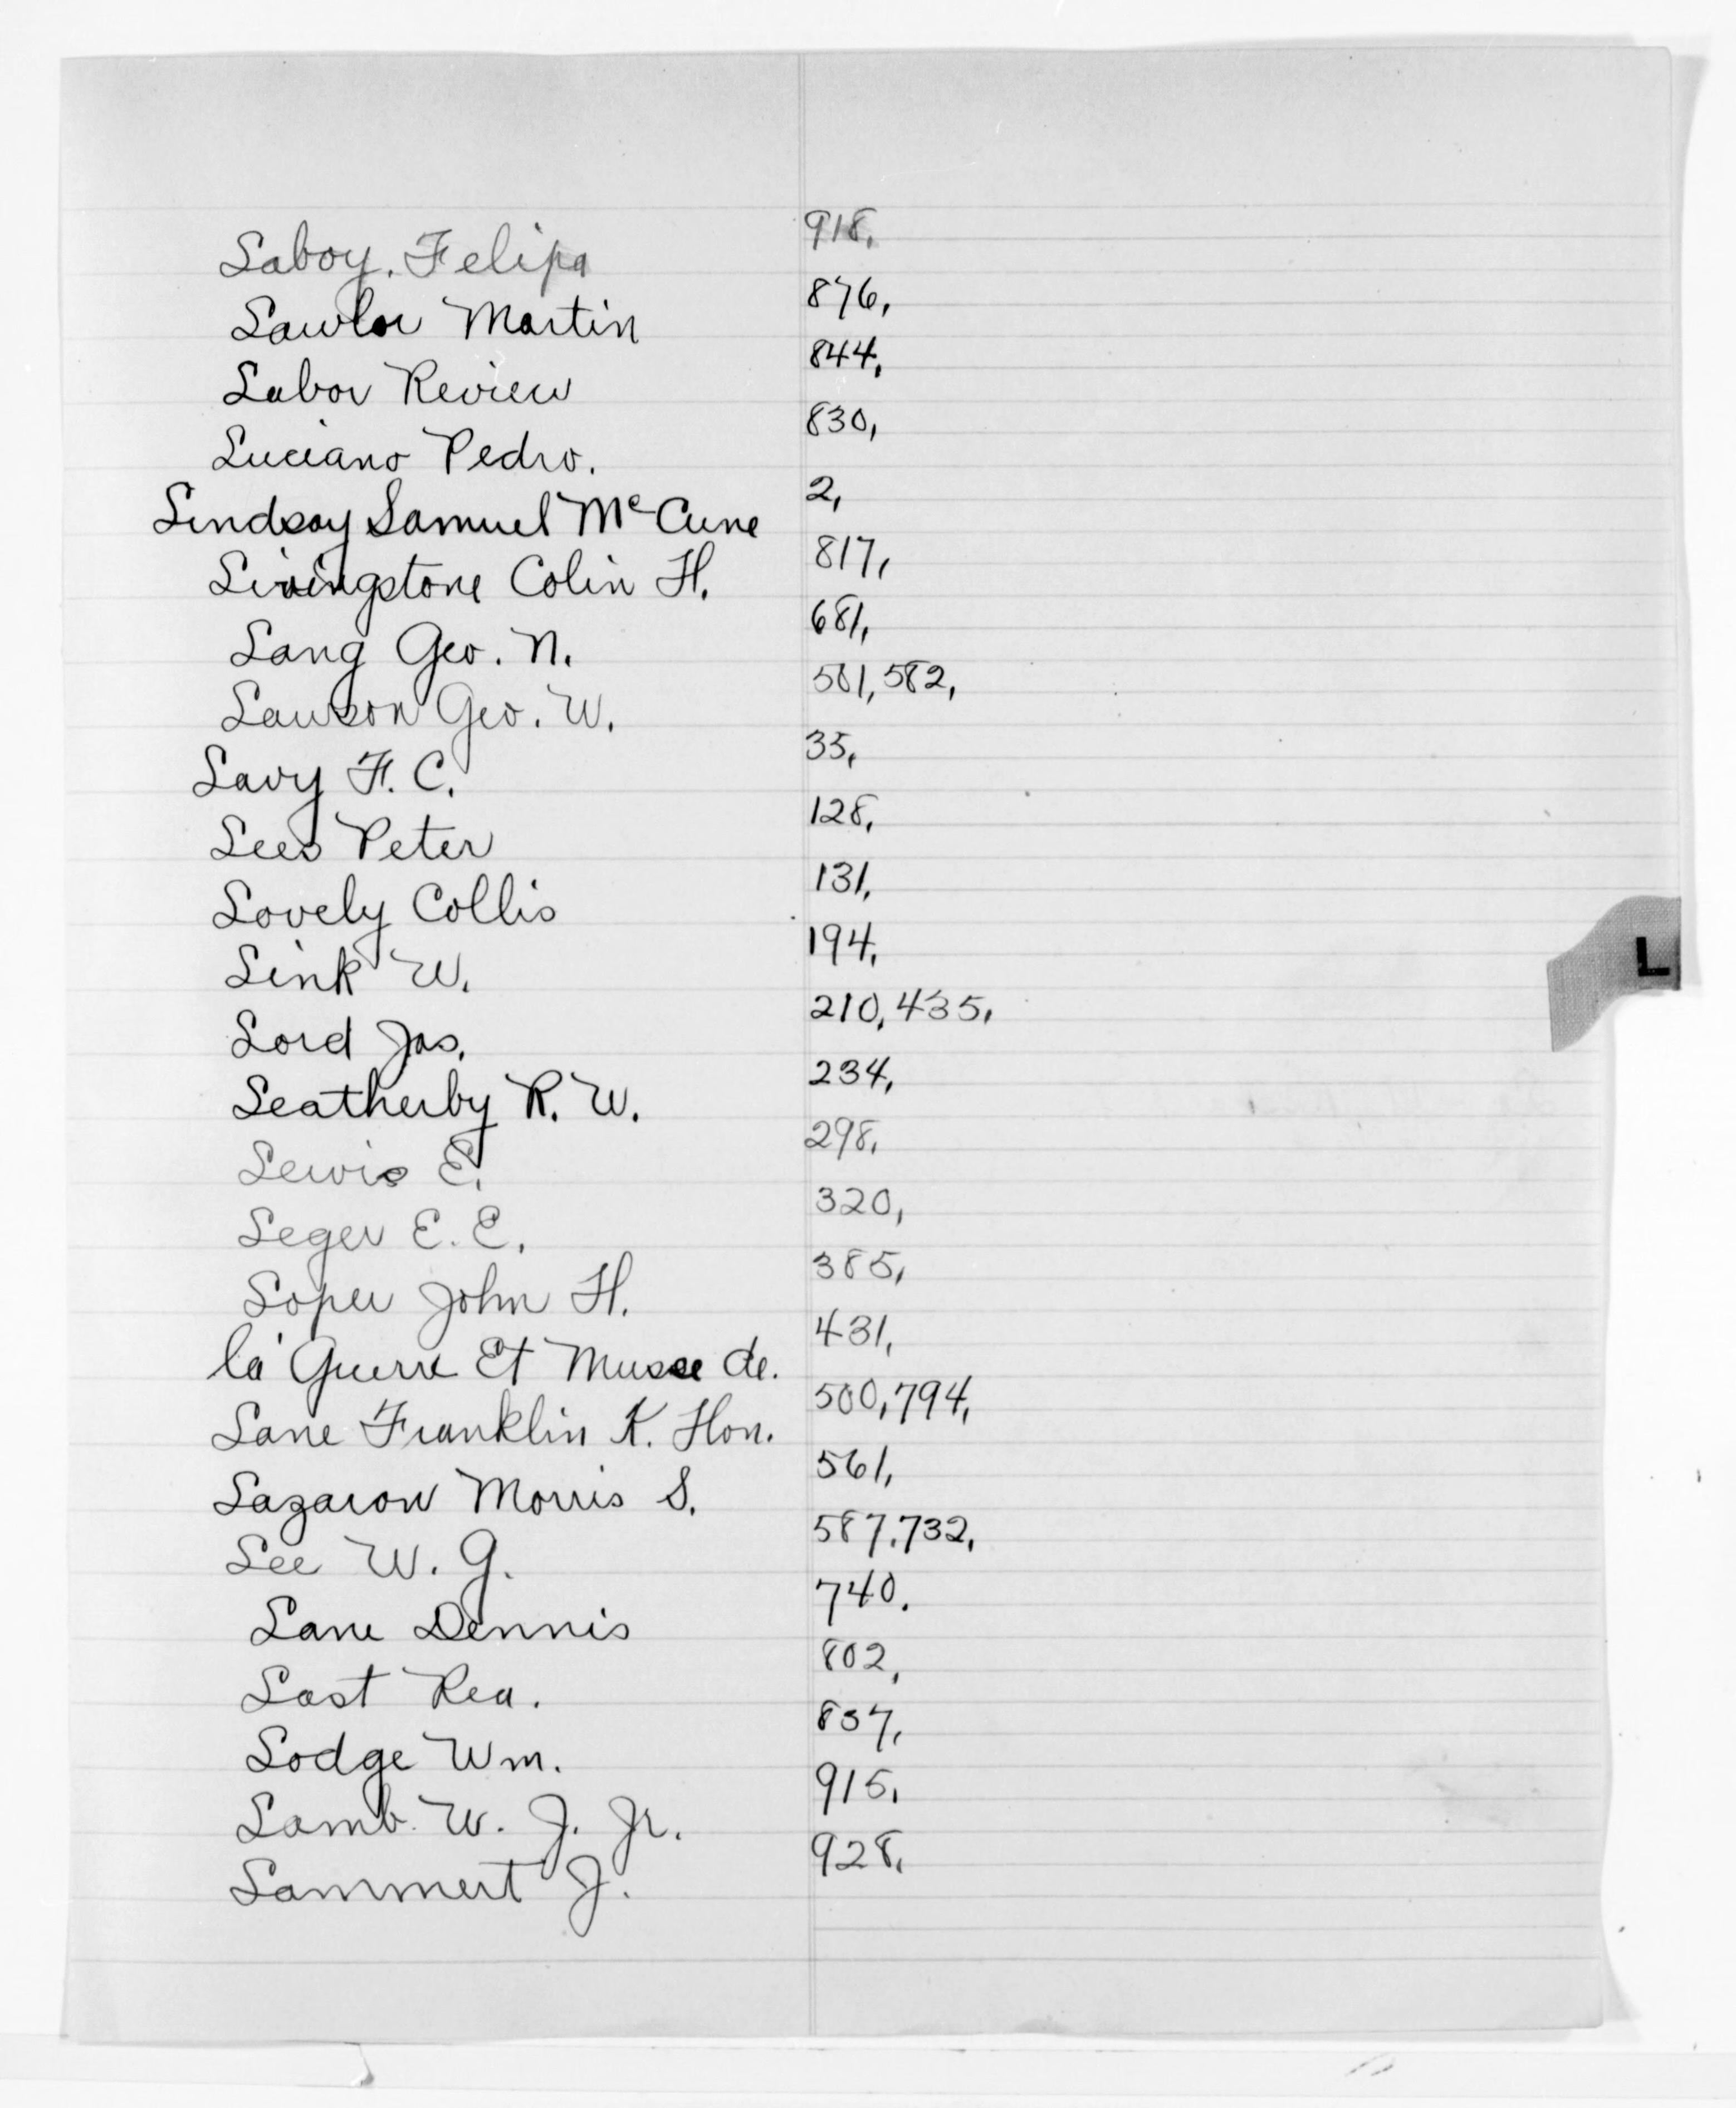 Laboy, Felipa 918,
Lawlor Martin 876,
Labor Review 844,
Luciano Pedro. 830,
Lindsay Samuel McCune 2,
Livingstone Colin H. 817,
Lang Geo. N. 681,
Lawson Geo. W. 581, 582,
Lavy F. C. 35,
Lees Peter 128,
Lovely Collis 131,
Link W. 194,
L
Lord Jas. 210, 435,
Leatherby R. W. 234,
Lewis E. 298,
Leger E. E. 320,
Loper John H. 385,
la Guerre Et Musee de. 431,
Lane Franklin K. Hon. 500, 794,
Lazaron Morris S. 561,
Lee W. G. 587, 732,
Lane Dennis 740.
Last Rea. 802,
Lodge Wm. 837,
Lamb W. J. Jr. 915,
Lammert J. 928,